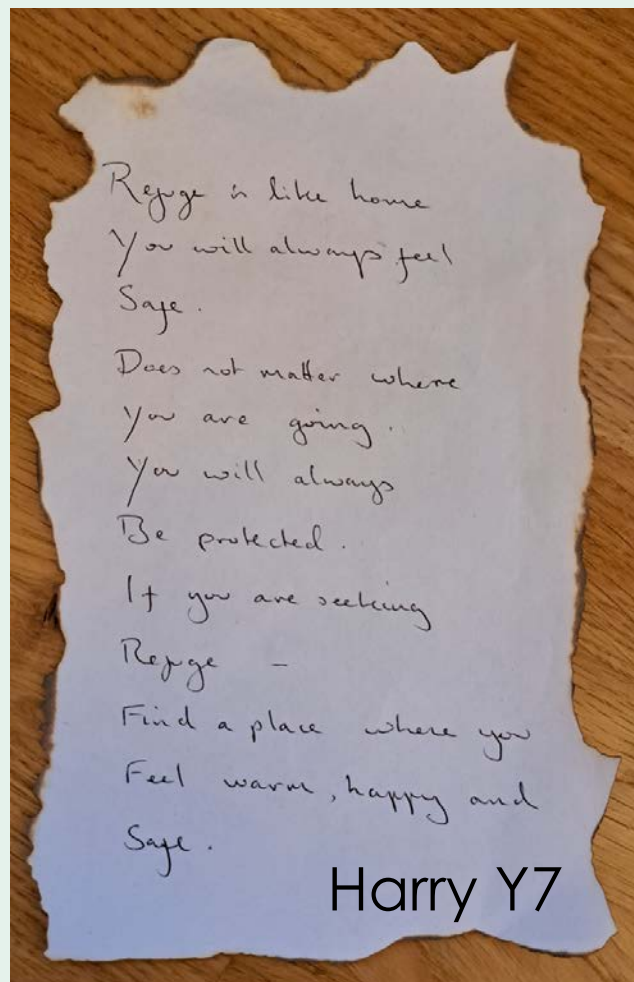 Refuge is like home
You will always feel
Safe.
Does not matter where
You are going.
You will always
Be protected.
If you are seeking
Refuge -
Find a place where you
Feel warm, happy and
Safe.
Harry Y7